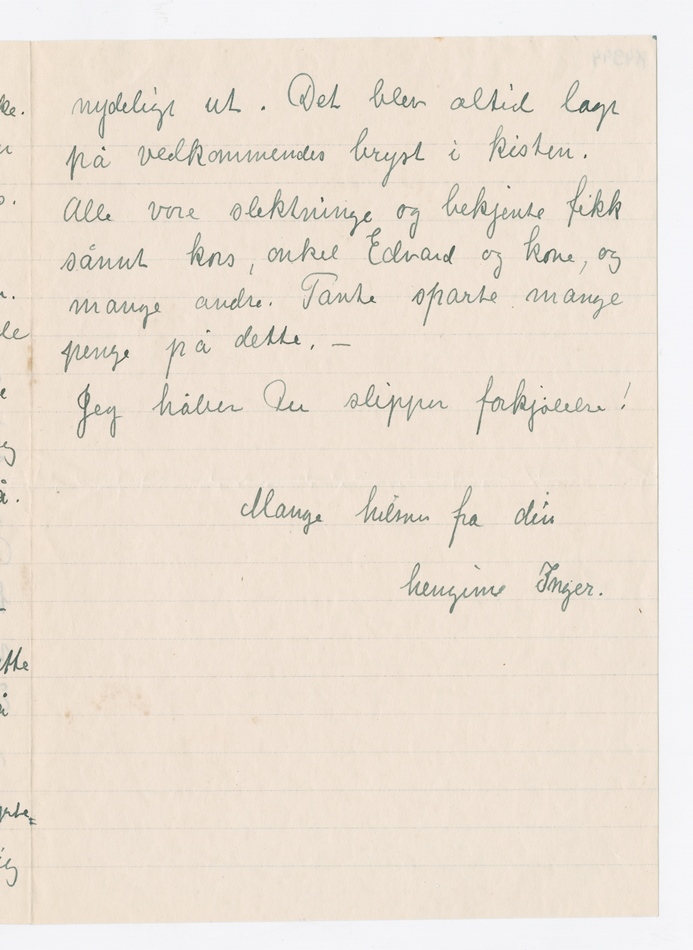 nydeligt ut. Det blev altid lagt
på vedkommendes bryst i kisten.
Alle vore slektninge og bekjente fikk
sånnt kors, onkel Edvard og kone, og
mange andre. Tante sparte mange
penge på dette. —
Jeg håber Du slipper forkjølelse!
Mange hilsner fra din
hengivne Inger.